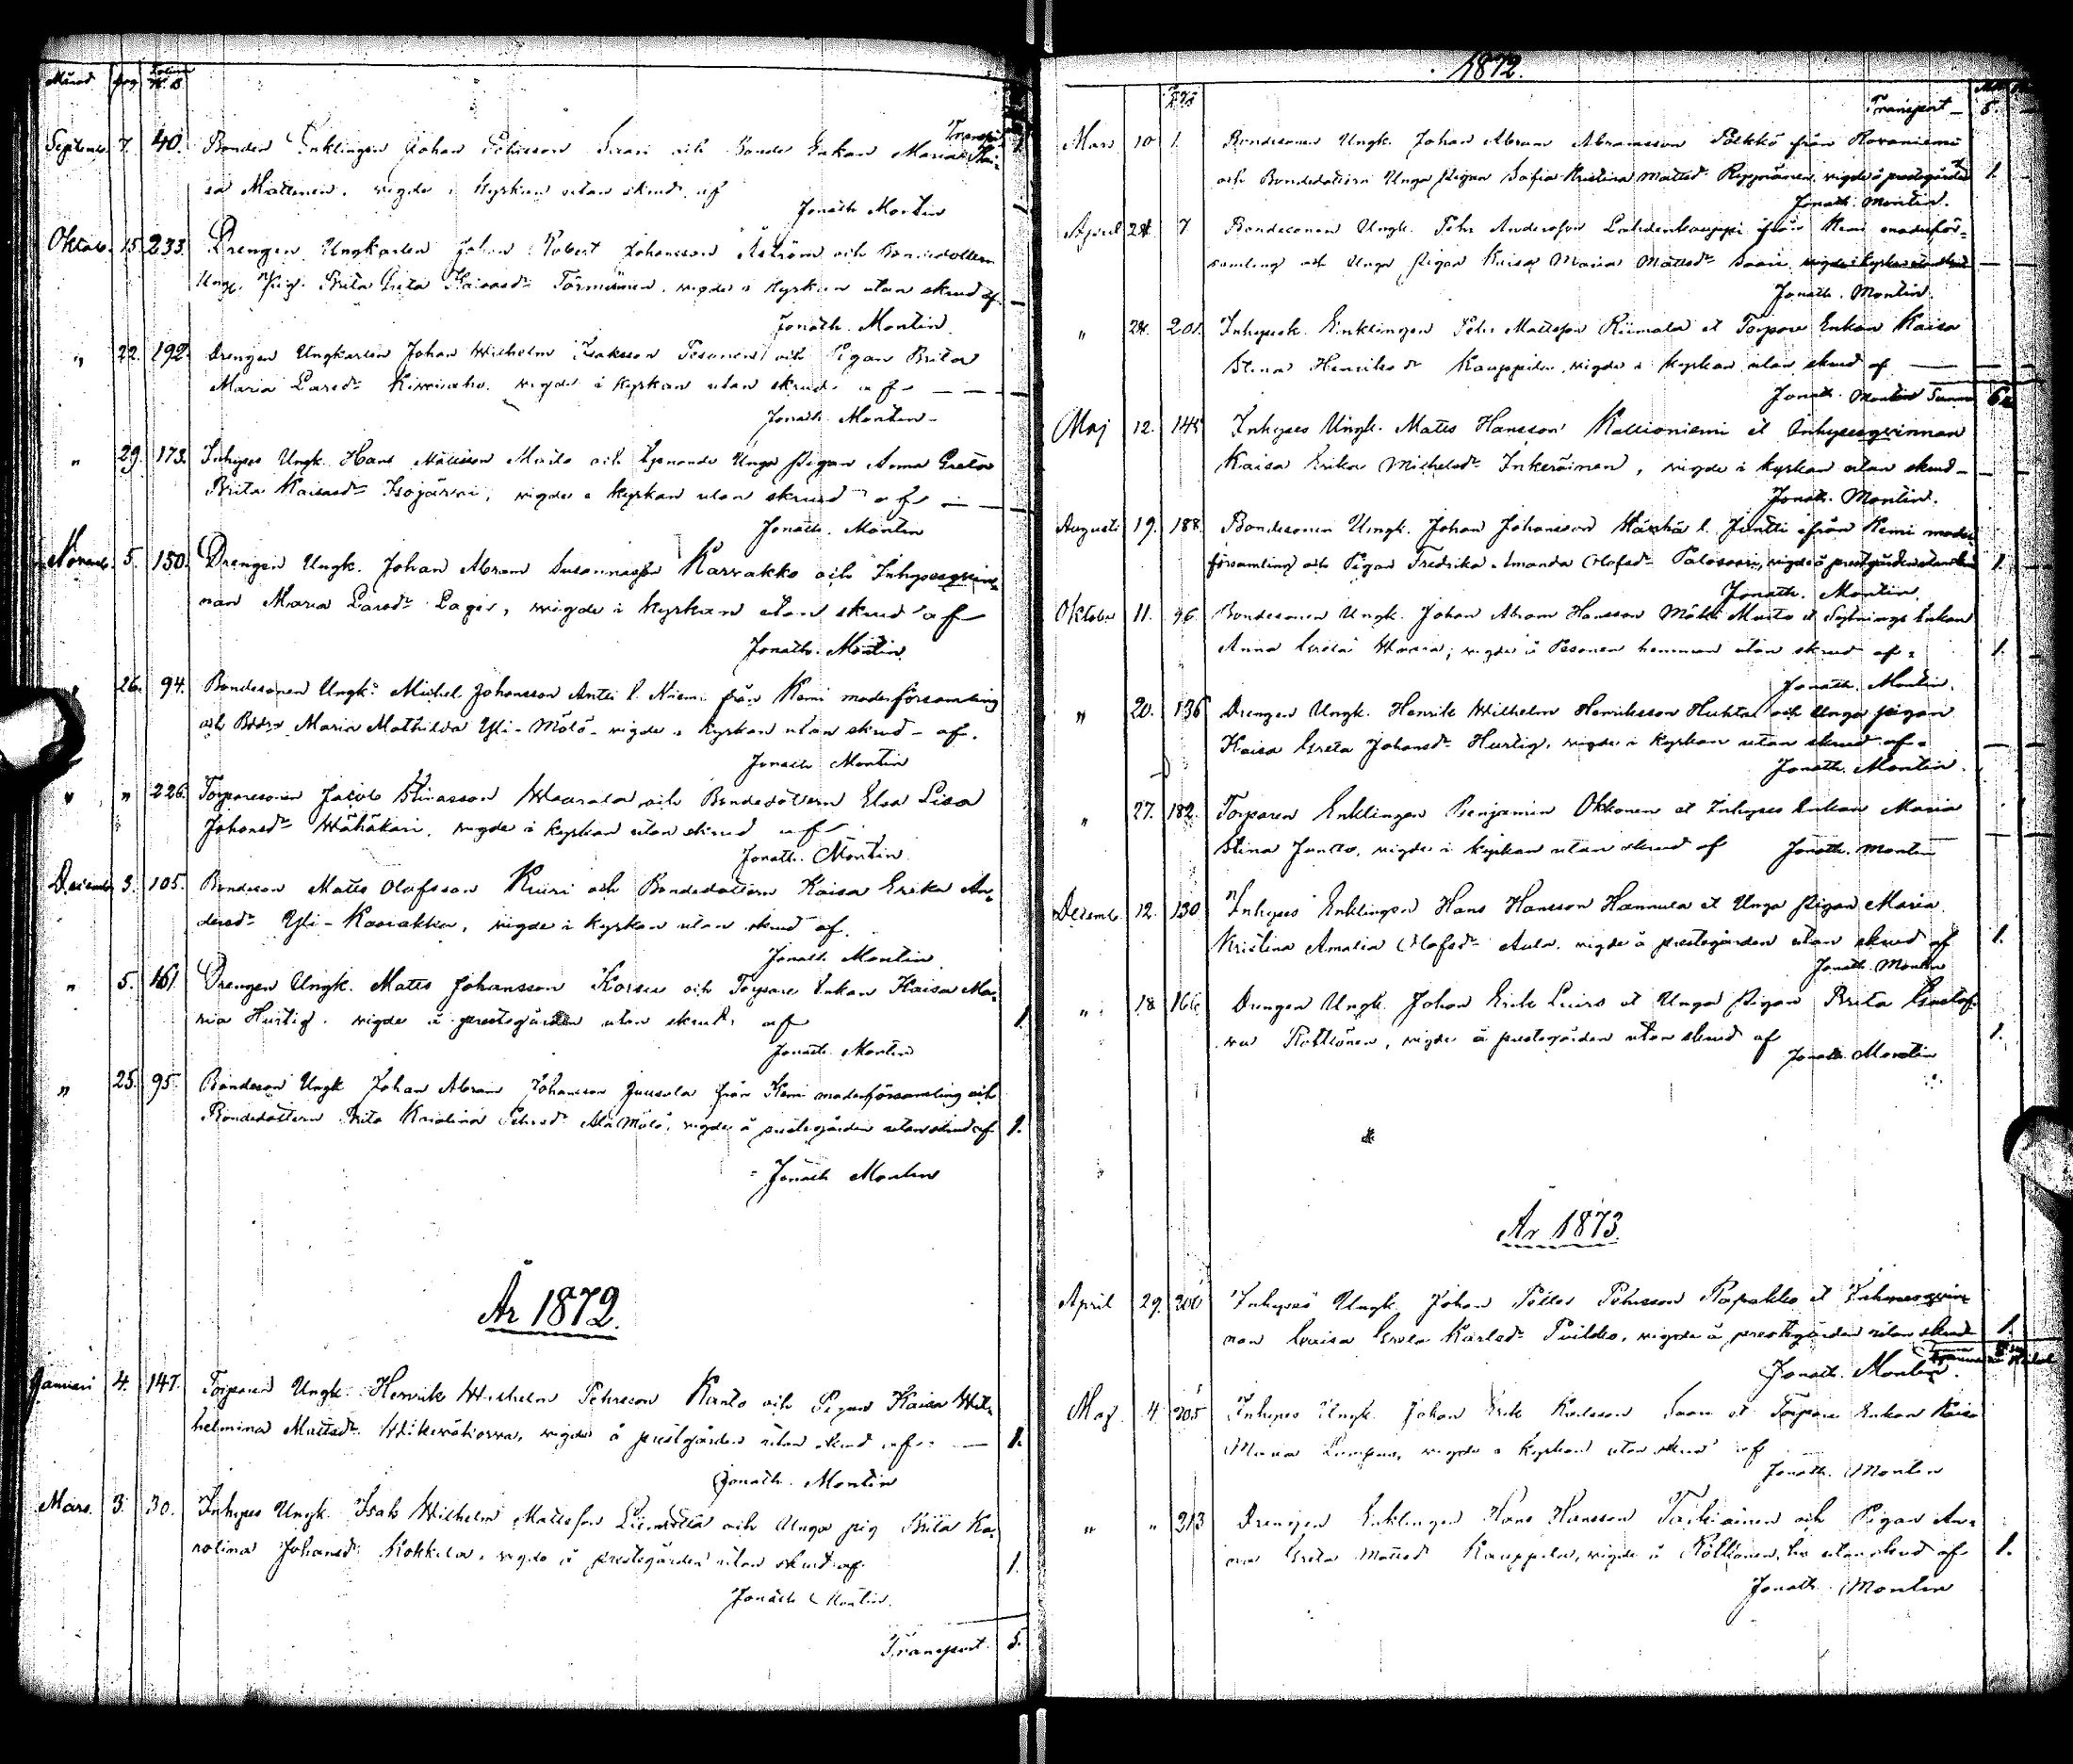 Månad Dag N:o
Transp.
Septemb. 7. 40. Bonden Enklingen Johan Pehrsson Saari och Bonde Enkan Maria Kai-
sa Mattinen, vigde i kyrkan utan skrud af
Jonath. Montin
Oktob. 15. 233. Drengen Ungkarlen Johan Robert Johansson Åström och Bondedottern
Ung. Pig. Brita Greta Kaisasdr Törmänen, vigde i kyrkan utan skrud af
Jonath. Montin.
" 22. 192. Drengen Ungkarlen Johan Wilhelm Isaksson Pesonen och Pigan Brita
Maria Larsdr Kiviniemi vigde i kyrkan utan skrud af
Jonath. Montin
" 29. 173. Inhyses Ungk. Hans Mattsson och Unga Pigan Anna Greta
Brita Kaisasdr Isojärvi, vigde i kyrkan utan skrud af
Jonath. Montin
Novemb. 5. 150. Drengen Ungk. Johan Abram Susannasson Karvakko och Inhysesqvin-
nan Maria Larsdr Lager, vigde i kyrkan utan skrud af
Jonath. Montin.
" 26. 94. Bondesonen Ungk. Michel Johansson Antti l. Niemi från Kemi moderförsamling
och Maria Mathilda Yli-Mölö, vigde i kyrkan utan skrud af.
Jonath. Montin
" " 226. Torparesonen Jacob Stinasson Waarala och Bondedottern Elsa Lisa
Johansdr Wähäkari, vigde i kyrkan utan skrud af
Jonath. Montin
Decemb. 3. 105. Bondeson Matts Olofsson Kiuri och Bondedottern Kaisa Erika An-
dersdr Yli-Kaarakka, vigde i kyrkan utan skrud af.
Jonath. Montin
" 5. 161. Drengen Ungk. Matts Johansson Korva och Torpare Enkan Kaisa Ma-
ria Hurtig. vigde å prestegården utan skrud, af 1.
Jonath. Montin
" 25. 95. Bondeson Ungk Johan Abram Johansson Juusola från Kemi moderförsamling och
Bondedottern Brita Karolina Pehrsdr Ala Mölö, vigde å prestegården utan skrud af 1.
Jonath Montin
År 1872.
Januari 4. 147. Torparen Ungk. Henrik Wilhelm Pehrsson Kanto och Pigan Kaisa Wil-
helmina Mattsdr vigde å prestgården utan skrud af 1.
Jonath. Montin
Mars. 3. 30. Inhyses Ungk. Isak Wilhelm Mattsson och Unga pig Brita Ka-
rolina Johansdr Kokkila, vigde å prestegården utan skrud af 1.
Jonath Montin.
Transport. 5.
1872.
Transport 5.
Mars 10 1. Bondesonen Ungk. Johan Abram Abramsson Pölkkö från Rovaniemi
och Bondedottern Unga Pigan Sofia Kristina Mattsdr vigde å prestegården 1.
Jonath. Montin.
April 28. 7 Bondesonen Ungk. Pehr Andersson Lahdenkauppi från Kemi moderför-
samling och Unga Pigan Kaisa Maria Mattsdr Saari vigde i kyrkan utan skrud
Jonath. Montin.
" 28. 201. Inhysesk. Enklingen Pehr Mattsson Riimala et Torpare Enkan Kaisa
Stina Henriksdr Kauppila, vigde i kyrkan utan skrud af
Jonath. Montin Summa 6
Maj 12. 145 Inhyses Ungk. Matts Hansson Kallioniemi et Inhysesqvinnan
Kaisa Erika Michelsdr Inkeröinen, vigde i kyrkan utan skrud
Jonath. Montin.
Augusti 19. 188. Bondesonen Ungk. Johan Johansson Härkä l. Juntti ifrån Kemi moder-
församling och Pigan Fredrika Amanda Olofsdr Palosaari, vigde å prestgården utan skrud 1.
Jonath. Montin.
Oktober 11. 96 Bondesonen Ungk. Johan Abram Hansson et Sytnings Enkan
Anna Greta vigde å Pesonen hemman utan skrud af 1.
Jonath. Montin.
" 20. 136 Drengen Ungk. Henrik Wilhelm Henriksson Huhta och Unga pigan
Kaisa Greta Johansdr Hurtig, vigde i kyrkan utan skrud af
Jonath. Montin.
" 27. 182. Torparen Enklingen Benjamin Okkonen et Inhyses Enkan Maria
Stina Juntto, vigde i kyrkan utan skrud af Jonath. Montin
Decemb. 12. 130 Inhyses Enklingen Hans Hansson Hannula et Unga Pigan Maria
Kristina Amalia Olofsdr Aula, vigde å prestegården utan skrud af 1.
Jonath. Montin
" 18 166. Drengen Ungk. Johan Erik Luiro et Unga Pigan Brita Gustaf-
va Rottiönen, vigde å prestegården utan skrud af 1.
Jonath. Montin
År 1873.
April 29. 200 Inhyses Ungk. Johan Petter Pehrsson Rapakko et Inhysesqvin-
nan Lovisa Greta Karlsdr vigde å prestegården utan skrud 1.
Jonath. Montin.
Maj. 4 205 Inhyses Ungk. Johan Erik Karlsson Saari et Torpare Enkan Kaisa
Maria Lampus, vigde i kyrkan utan skrud af
Jonath. Montin
" " 213 Drengen Enklingen Hans Hansson och Pigan An-
na Greta Mattsd Kauppila, vigde å utan skrud af 1.
Jonath. Montin